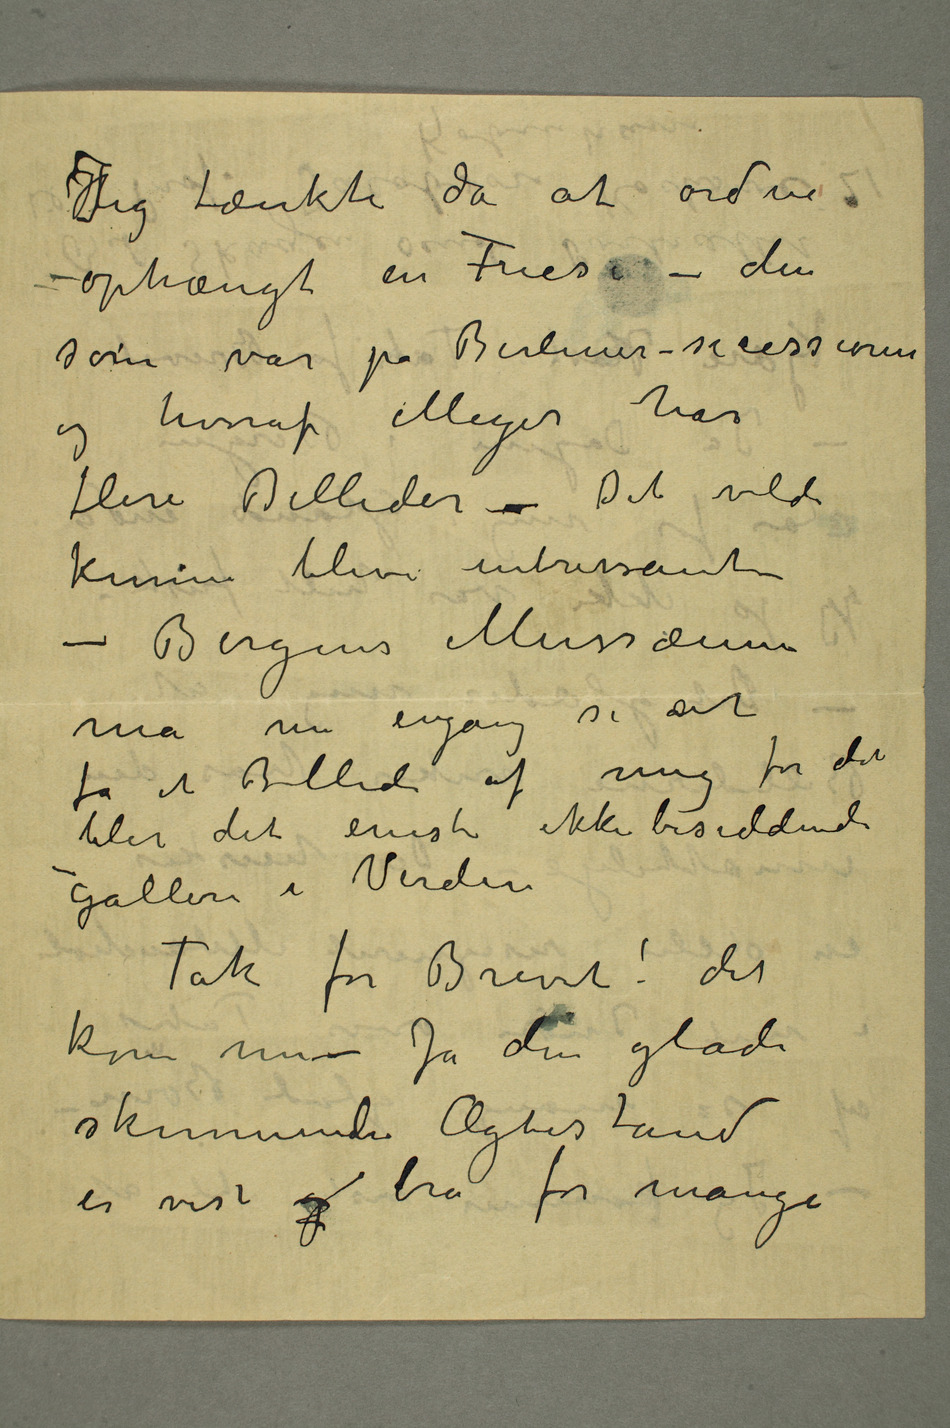 Jeg tænkte da at ordne
– ophængt en Friese – den
som var på Berliner-secessionen
og hvoraf Meyer har
flere Billeder – Det vilde
kunne blive intressant
– Bergens Mussæum
må nu engang se at
få et Billede af mig for det
blir det eneste ikkebesiddende
Galleri i Verden
Tak for Brevet! det
kom nu – Ja den glade
skinnende Ægtestand
er vist bra for mange